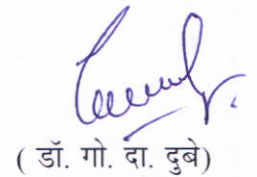 ( डॉ. गो. दा. दुबे)